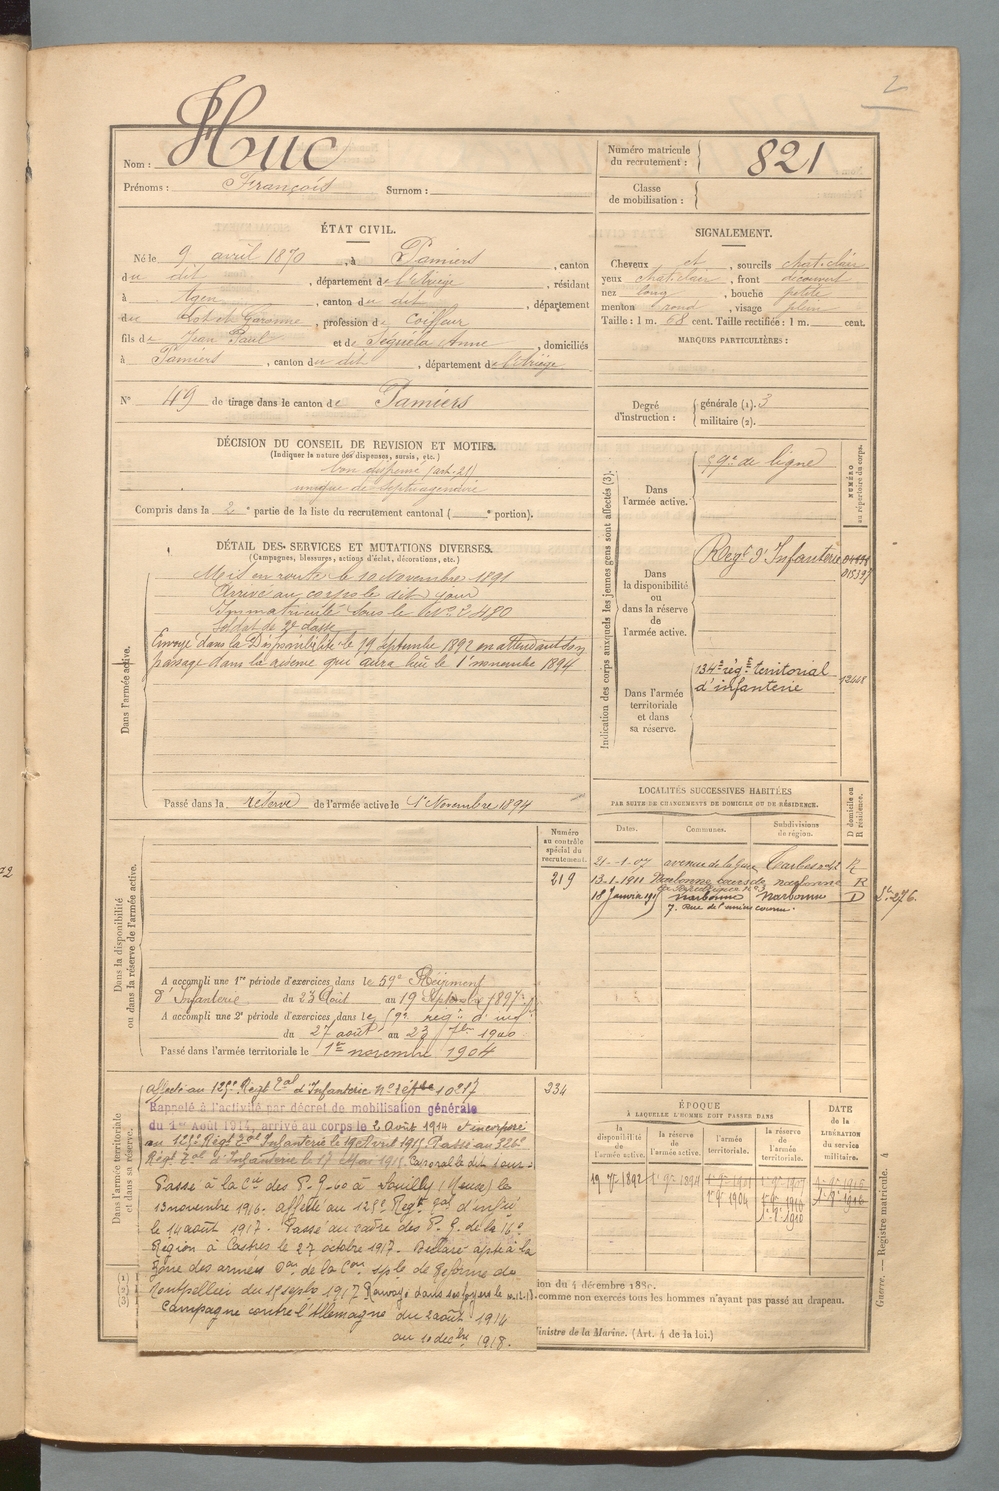 2
Nom : Huc
Prénoms : François Surnom :
Numéro matricule du recrutement : 821
Classe de mobilisation :
ÉTAT CIVIL.
Né le 9 avril 1870, à Pamiers, canton
du dit, département de l'Ariège, résidant
à Agen, canton du dit, département
du Lot et Garonne, profession de coiffeur
fils de Jean Paul et de Séguela Anne, domiciliés
à Pamiers, canton du dit, département de l'Ariège
N° 49 de tirage dans le canton de Pamiers
SIGNALEMENT.
Cheveux et, sourcils chat. clair
yeux chat. clair, front découvert
nez long, bouche petite
menton rond, visage plein
Taille : 1 m. 68 cent. Taille rectifiée : 1 m. cent.
MARQUES PARTICULIÈRES :
Degré d'instruction : générale (1). 3
militaire (2).
DÉCISION DU CONSEIL DE REVISION ET MOTIFS.
(Indiquer la nature des dispenses, sursis, etc.)
bon dispensé (art. 21)
unique de septuagénaire
Compris dans la 2e partie de la liste du recrutement cantonal ( e portion).
DÉTAIL DES SERVICES ET MUTATIONS DIVERSES.
(Campagnes, blessures, actions d'éclat, décorations, etc.)
Dans l'armée active.
Mis en route le 10 Novembre 1891
Arrivé au corps le dit jour
Immatriculé sous le N° 480
Soldat de 2e classe
Envoyé dans la Disponibilité le 29 Septembre 1892 en attendant son
passage dans la réserve qui aura lieu le 1er novembre 1894
Passé dans la réserve de l'armée active le 1er Novembre 1894
Indication des corps auxquels les jeunes gens sont affectés (3).
NUMÉRO au répertoire du corps.
Dans l'armée active. 59e de ligne
Dans la disponibilité ou dans la réserve de l'armée active.
Regt d'Infanterie
01539
Dans l'armée territoriale et dans sa réserve.
134e régt territorial
d'infanterie
12448
LOCALITÉS SUCCESSIVES HABITÉES
PAR SUITE DE CHANGEMENTS DE DOMICILE OU DE RÉSIDENCE.
Dates. Communes. Subdivisions de région. D domicile ou R résidence.
21-1-07 avenue de la gare Tarbes R
13-1-1911 Narbonne narbonne R
18 Janvier narbonne narbonne D
7. Rue de l'ancien courrier
Dans la disponibilité ou dans la réserve de l'armée active.
Numéro au contrôle spécial du recrutement.
219
A accompli une 1re période d'exercices dans le 59e Régiment
d'Infanterie du 23 Août au 19 Septembre 1897
A accompli une 2e période d'exercices dans le 59e régt d'inf
du 27 août au 23 7bre 1900
Passé dans l'armée territoriale le 1er novembre 1904
Dans l'armée territoriale et dans sa réserve.
234
Affecté au 125e Régt Tal d'Infanterie
Rappelé à l'activité par décret de mobilisation générale
du 1er Août 1914, arrivé au corps le 2 Août 1914 et incorporé
au 125e Régt Tal Infanterie le 19 Avril 1915 Passé au 326e
Régt Tal d'Infanterie le 17 Mai 1915 Caporal le dit jour
Passé à la Cie des P. G. à Souilly (Meuse) le
13 novembre 1916. affecté au 125e Regt Tal d'infie
le 14 août 1917. Passé au cadre des P. G. de la 16e
Région à Castres le 27 octobre 1917. Déclaré apte à la
zone des armées Don de la Con sple de Réforme de
Montpellier du septe 1917 Renvoyé dans ses foyers le
Campagne contre l'Allemagne du 2 août 1914
au 10 décbre 1918.
ÉPOQUE
À LAQUELLE L'HOMME DOIT PASSER DANS
la disponibilité de l'armée active. la réserve de l'armée active. l'armée territoriale. la réserve de l'armée territoriale.
DATE de la LIBÉRATION du service militaire.
1er 9bre 1904
1er 9bre 1910
1er 9bre 1916
(1)
(2)
(3)
ion du 4 décembre 188
comme non exercés tous les hommes n'ayant pas passé au drapeau.
Ministre de la Marine. (Art. 4 de la loi.)
Guerre. — Registre matricule. 4